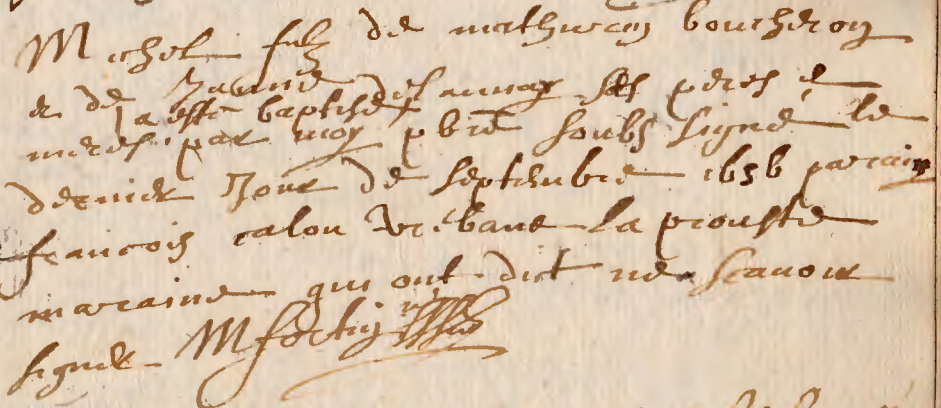 Michel filz de mathurin boucheron
& de Jacine desaunay ses peres &
a esté baptisé
meres par moy pbre soubs signé le
dernier Jour de septembre 1656 parain
francois calou Urbane la prouste
maraine qui ont dict ne scavoir
signer M fortin